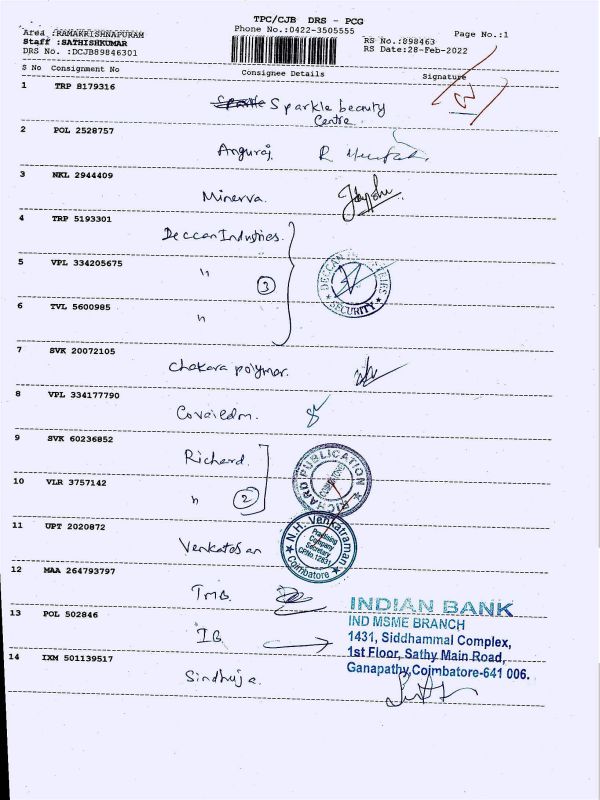 TPC/CJB DRS - PCG
Area :RAMAKRISHNAPURAM
Phone No.:0422-3505555
Page No.:1
Staff :SATHISHKUMAR
RS No.:898463
DRS No. :DCJB89846301
RS Date:28-Feb-2022
S No Consignment No Consignee Details Signature
1 TRP 8179316
Sparkle beauty
Centre.
2 POL 2528757
Anguraj.
3 NKL 2944409
Minerva.
4 TRP 5193301
Deccan Industries.
5 VPL 334205675
"
3
DECCAN INDUSTRIES
SECURITY
6 TVL 5600985
"
7 SVK 20072105
Chakara polymer.
8 VPL 334177790
9 SVK 60236852
Richard.
RICHARD PUBLICATION
COIMBATORE
10 VLR 3757142
" 2
11 UPT 2020872
Venkatesan
N.H. Venkatraman
Practising
Company
Secretary
CP.No.12831
Coimbatore
12 MAA 264793797
TMB.
13 POL 502846
IB
INDIAN BANK
IND MSME BRANCH
1431, Siddhammal Complex,
1st Floor, Sathy Main Road,
Ganapathy,Coimbatore-641 006.
14 IXM 501139517
Sindhuja.